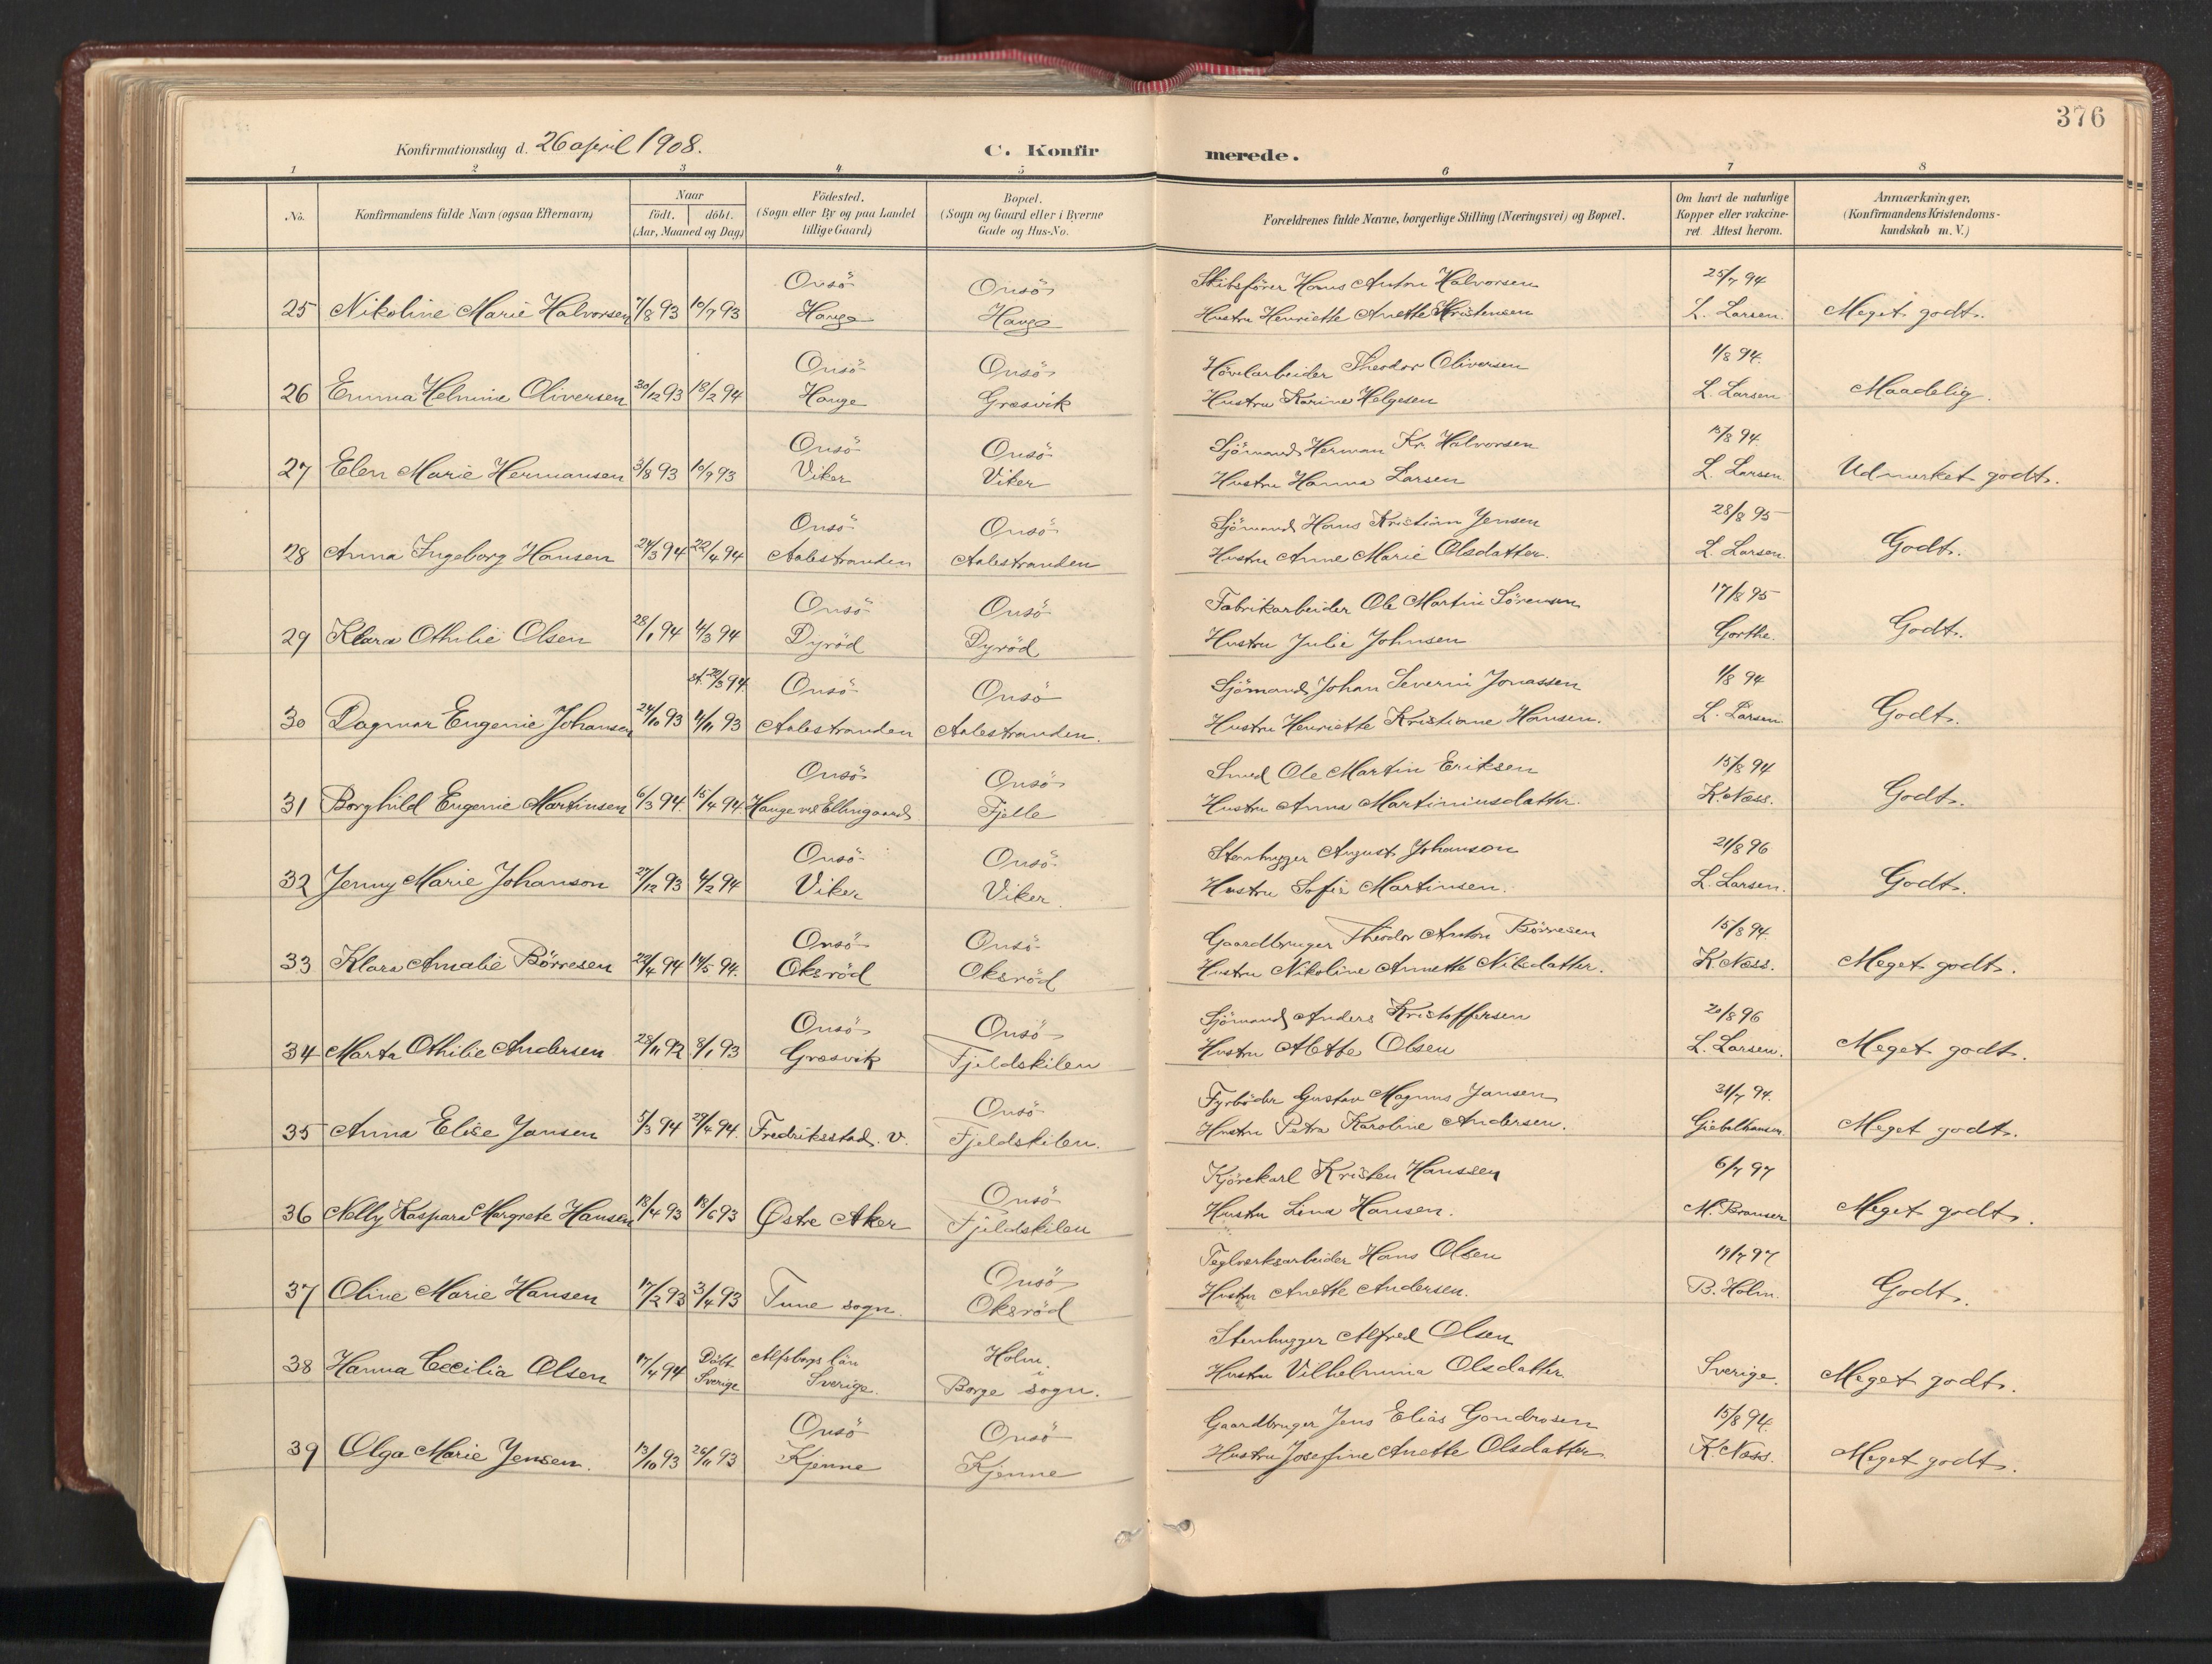 376
Konfirmationsdag d. 26 april 1908.
C. Konfirmerede.
1 2 3 4 5 6 7 8
No. Konfirmandens fulde Navn (ogsaa Efternavn) Naar födt. döbt. (Aar, Maaned og Dag) Födested. (Sogn eller By og paa Landet tillige Gaard) Bopæl. (Sogn og Gaard eller i Byerne Gade og Hus-No. Forældrenes fulde Navne, borgerlige Stilling (Næringsvei) og Bopæl. Om havt de naturlige Kopper eller vakcineret. Attest herom. Anmærkninger. (Konfirmandens Kristendomskundskab m.V.)
Onsö Onsö Skibsförer Hans Anton Halvorsen 25/7 94
25 Nikoline Marie Halvorsen 7/8 93 10/9 93 Hauge Hauge Hustru Henriette Anette Kristensen L. Larsen Meget godt.
Onsö Onsö Hövelarbeider Theodor Oliversen 1/8 94.
26 Emma Helmine Oliversen 30/12 93 18/2 94 Hauge Græsvik Hustru Karine Helgesen L. Larsen Maadelig.
Onsö Onsö Sjömand Herman Kr. Halvorsen 15/8 94.
27 Elen Marie Hermansen 3/8 93 10/9 93 Viker Viker Hustru Hanna Larsen L. Larsen Udmerket godt.
Onsö Onsö Sjömand Hans Kristian Jensen 28/8 95
28 Anna Ingeborg Hansen 24/3 94 22/4 94 Aalestranden Aalestranden Hustru Anne Marie Olsdatter. L. Larsen Godt.
Onsö Onsö Fabrikarbeider Ole Martin Sörensen 17/8 95
29 Klara Othilie Olsen 28/1 94 4/3 94 Dyröd Dyröd Hustru Julie Johnsen Gorthe. Godt.
st. 20/3 94. Onsö Onsö Sjömand Johan Severin Jonassen 1/8 94
30 Dagmar Eugenie Johansen 24/10 93 4/11 93 Aalestranden Aalestranden. Hustru Henriette Kristiane Hansen. L. Larsen Godt.
Onsö Onsö Smed Ole Martin Eriksen 15/8 94
31 Borghild Eugenie Martinsen 6/3 94. 15/4 94. Hauge ved Elingaard Fjelle Hustru Anna Martiniusdatter. K. Næss. Godt.
Onsö Onsö Stenhugger August Johanson 21/8 96
32 Jenny Marie Johanson 27/12 93 4/2 94 Viker Viker. Hustru Sofie Martinsen. L. Larsen. Godt.
Onsö Onsö Gaardbruger Theodor Anton Börresen 15/8 94.
33 Klara Amalie Börresen 22/4 94 14/5 94. Oksröd Oksröd Hustru Nikoline Annette Nilsdatter. K. Næss. Meget godt.
Onsö Onsö Sjömand Anders Kristoffersen 20/8 96
34 Marta Othilie Andersen 28/11 92 8/1 93 Græsvik Fjeldskilen Hustru Alette Olsen L. Larsen. Meget godt.
Onsö Fyrböder Gustav Magnus Jansen 31/7 94.
35 Anna Elise Jansen 5/3 94 29/4 94. Fredriksstad. V. Fjeldskilen. Hustru Petra Karoline Andersen. Giebelhausen. Meget godt.
Onsö Kjörekarl Kristen Hanssen 6/7 97
36 Nelly Kaspara Margrete Hansen 18/4 93 18/6 93 Østre Aker Fjeldskilen Hustru Lina Hansen. M. Branser Meget godt.
Onsö Teglverksarbeider Hans Olsen 19/7 97
37 Oline Marie Hansen 17/2 93 3/4 93 Tune sogn. Oksröd Hustru Anette Andersen. B. Holm Godt.
Döbt Alfsborgs län Holm. Stenhugger Alfred Olsen
38 Hanna Cecilia Olsen 17/4 94 Sverige Sverige. i Borge sogn. Hustru Vilhelmina Olsdatter. Sverige. Meget godt.
Onsö Onsö Gaardbruger Jens Elias Gundrosen 15/8 94.
39 Olga Marie Jensen. 13/10 93 26/11 93 Kjenne Kjenne Hustru Josefine Anette Olsdatter. K. Næss. Meget godt.